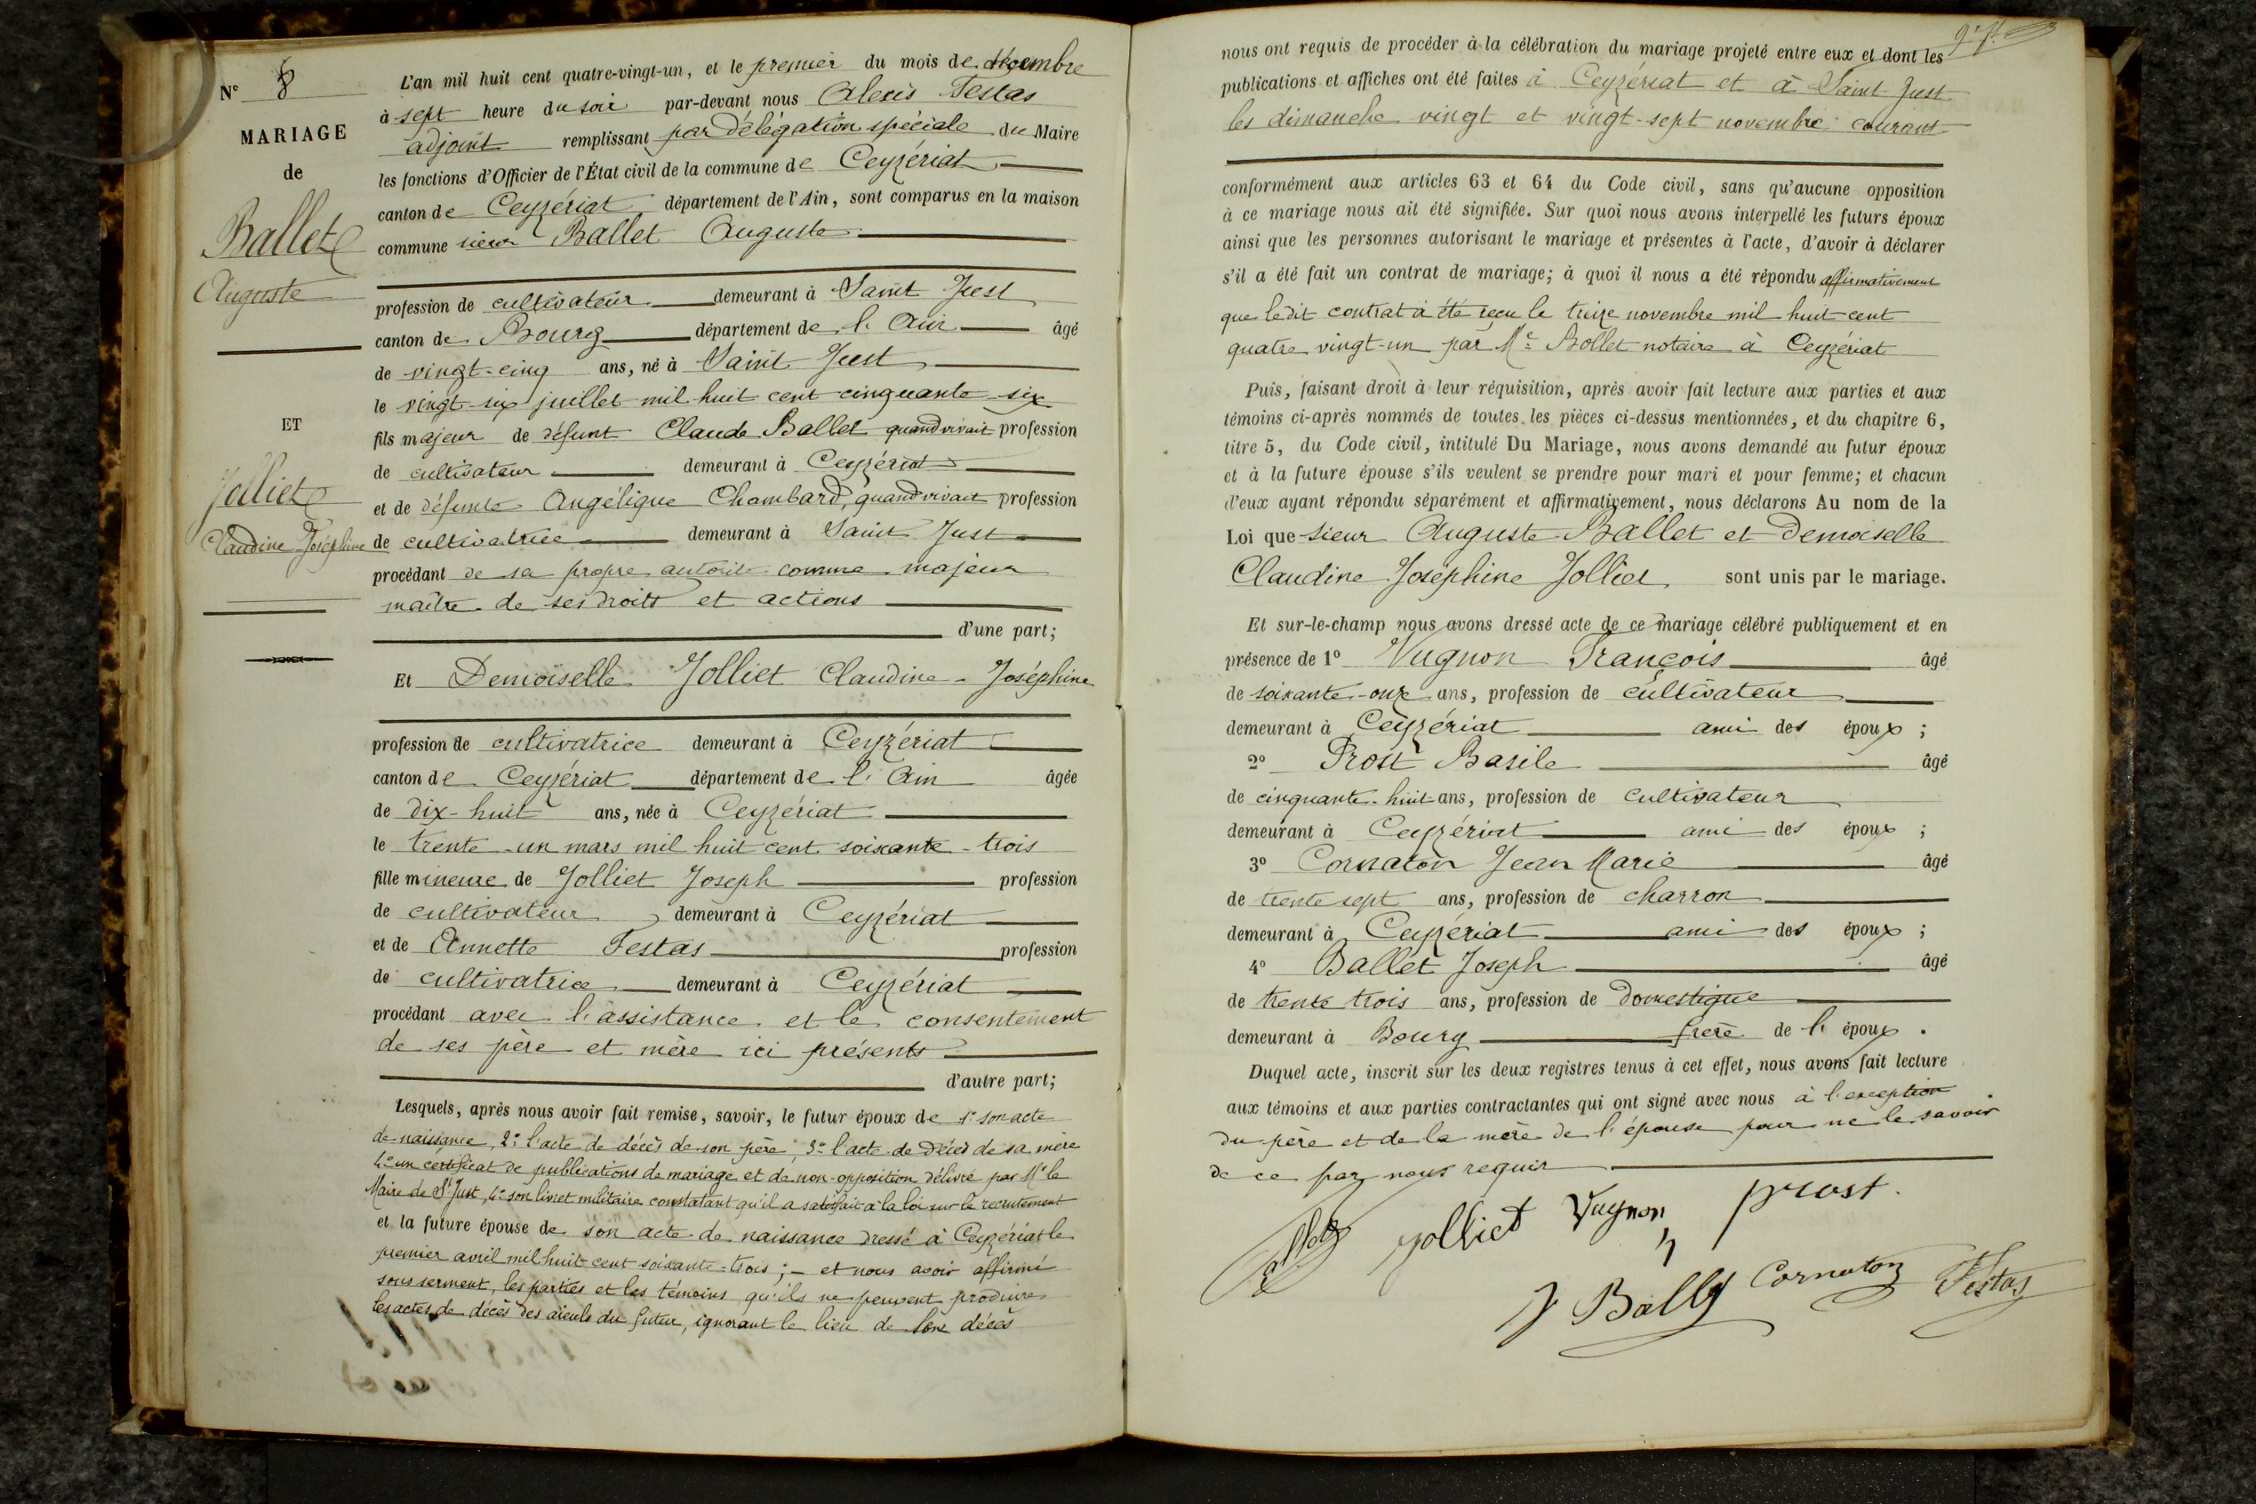 N° 8
MARIAGE
de
Ballet
Auguste
ET
Jolliet
Claudine Joséphine
L'an mil huit cent quatre-vingt-un, et le premier du mois de décembre
à sept heure du soir par-devant nous Alexis Testas
adjoint remplissant par délégation spéciale du Maire
les fonctions d'Officier de l'État civil de la commune de Ceyzériat
canton de Ceyzériat département de l'Ain, sont comparus en la maison
commune sieur Ballet Auguste
profession de cultivateur demeurant à Saint Just
canton de Bourg département de l'Ain âgé
de vingt-cinq ans, né à Saint Just
le vingt-six juillet mil huit cent cinquante-six
fils majeur de défunt Claude Ballet quand vivait profession
de cultivateur demeurant à Ceyzériat
et de défunte Angélique Chambard, quand vivait profession
de cultivatrice demeurant à Saint Just
procédant de sa propre autorité comme majeur
maître de ses droits et actions
d'une part;
Et Demoiselle Jolliet Claudine-Joséphine
profession de cultivatrice demeurant à Ceyzériat
canton de Ceyzériat département de l'Ain âgée
de dix-huit ans, née à Ceyzériat
le trente-un mars mil huit cent soixante-trois
fille mineure de Jolliet Joseph profession
de cultivateur demeurant à Ceyzériat
et de Annette Testas profession
de cultivatrice demeurant à Ceyzériat
procédant avec l'assistance et le consentement
de ses père et mère ici présents
d'autre part;
Lesquels, après nous avoir fait remise, savoir, le futur époux de 1° son acte
de naissance, 2° l'acte de décès de son père, 3° l'acte de décès de sa mère
4° un certificat de publications de mariage et de non-opposition délivré par Mr le
Maire de St Just, 4° son livret militaire constatant qu'il a satisfait à la loi sur le recrutement
et la future épouse de son acte de naissance dressé à Ceyzériat le
premier avril mil huit cent soixante-trois; - et nous avoir affirmé
sous serment, les parties et les témoins qu'ils ne peuvent produire
les actes de décès des aïeuls du futur, ignorant le lieu de leur décès
nous ont requis de procéder à la célébration du mariage projeté entre eux et dont les
publications et affiches ont été faites à Ceyzériat et à Saint Just
les dimanche vingt et vingt-sept novembre courant
conformément aux articles 63 et 64 du Code civil, sans qu'aucune opposition
à ce mariage nous ait été signifiée. Sur quoi nous avons interpellé les futurs époux
ainsi que les personnes autorisant le mariage et présentes à l'acte, d'avoir à déclarer
s'il a été fait un contrat de mariage; à quoi il nous a été répondu affirmativement
que ledit contrat a été reçu le treize novembre mil huit cent
quatre vingt-un par Me Bollet notaire à Ceyzériat
Puis, faisant droit à leur réquisition, après avoir fait lecture aux parties et aux
témoins ci-après nommés de toutes les pièces ci-dessus mentionnées, et du chapitre 6,
titre 5, du Code civil, intitulé Du Mariage, nous avons demandé au futur époux
et à la future épouse s'ils veulent se prendre pour mari et pour femme; et chacun
d'eux ayant répondu séparément et affirmativement, nous déclarons Au nom de la
Loi que sieur Auguste Ballet et Demoiselle
Claudine Joséphine Jolliet sont unis par le mariage.
Et sur-le-champ nous avons dressé acte de ce mariage célébré publiquement et en
présence de 1° Vugnon François âgé
de soixante-onze ans, profession de cultivateur
demeurant à Ceyzériat ami des époux ;
2° Prost Basile âgé
de cinquante-huit ans, profession de cultivateur
demeurant à Ceyzériat ami des époux ;
3° Cornaton Jean Marie âgé
de trente sept ans, profession de charron
demeurant à Ceyzériat ami des époux ;
4° Ballet Joseph âgé
de trente trois ans, profession de domestique
demeurant à Bourg frère de l'époux .
Duquel acte, inscrit sur les deux registres tenus à cet effet, nous avons fait lecture
aux témoins et aux parties contractantes qui ont signé avec nous à l'exception
du père et de la mère de l'épouse pour ne le savoir
de ce par nous requis
Ballet Jolliet Vugnon prost
J Ballet Cornaton Testas